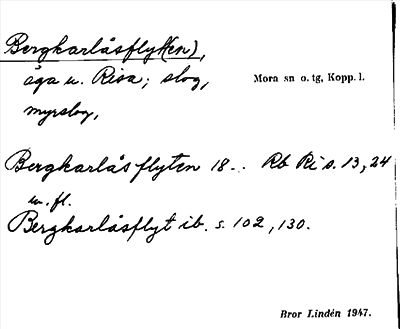 Bergkarlåsflyt(en),
äga u. Risa; slog,
Mora sn o. tg, Kopp. l.
myrslog,
Bergkarlåsflyten 18-. Rb Ri s. 13, 24
m. fl.
Bergkarlåsflyt ib. s. 102, 130.
Bror Lindén 1947.